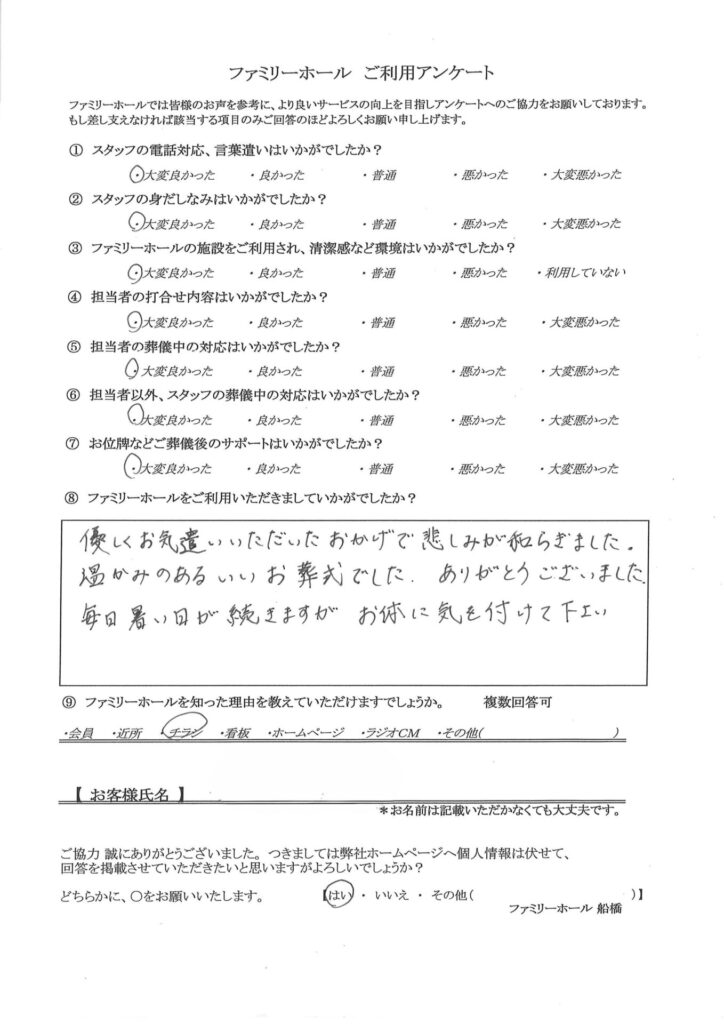 ファミリーホール ご利用アンケート
ファミリーホールでは皆様のお声を参考に、より良いサービスの向上を目指しアンケートへのご協力をお願いしております。
もし差し支えなければ該当する項目のみご回答のほどよろしくお願い申し上げます。
① スタッフの電話対応、言葉遣いはいかがでしたか？
・大変良かった ・良かった ・普通 ・悪かった ・大変悪かった
② スタッフの身だしなみはいかがでしたか？
・大変良かった ・良かった ・普通 ・悪かった ・大変悪かった
③ ファミリーホールの施設をご利用され、清潔感など環境はいかがでしたか？
・大変良かった ・良かった ・普通 ・悪かった ・利用していない
④ 担当者の打合せ内容はいかがでしたか？
・大変良かった ・良かった ・普通 ・悪かった ・大変悪かった
⑤ 担当者の葬儀中の対応はいかがでしたか？
・大変良かった ・良かった ・普通 ・悪かった ・大変悪かった
⑥ 担当者以外、スタッフの葬儀中の対応はいかがでしたか？
・大変良かった ・良かった ・普通 ・悪かった ・大変悪かった
⑦ お位牌などご葬儀後のサポートはいかがでしたか？
・大変良かった ・良かった ・普通 ・悪かった ・大変悪かった
⑧ ファミリーホールをご利用いただきましていかがでしたか？
優しくお気遣いいただいたおかげで悲しみが和らぎました。
温かみのあるいいお葬式でした。ありがとうございました。
毎日暑い日が続きますが お体に気を付けて下さい
⑨ ファミリーホールを知った理由を教えていただけますでしょうか。 複数回答可
・会員 ・近所 ・チラシ ・看板 ・ホームページ ・ラジオCM ・その他( )
【 お客様氏名 】
＊お名前は記載いただかなくても大丈夫です。
ご協力 誠にありがとうございました。つきましては弊社ホームページへ個人情報は伏せて、
回答を掲載させていただきたいと思いますがよろしいでしょうか？
どちらかに、〇をお願いいたします。 【はい ・ いいえ ・ その他( )】
ファミリーホール 船橋